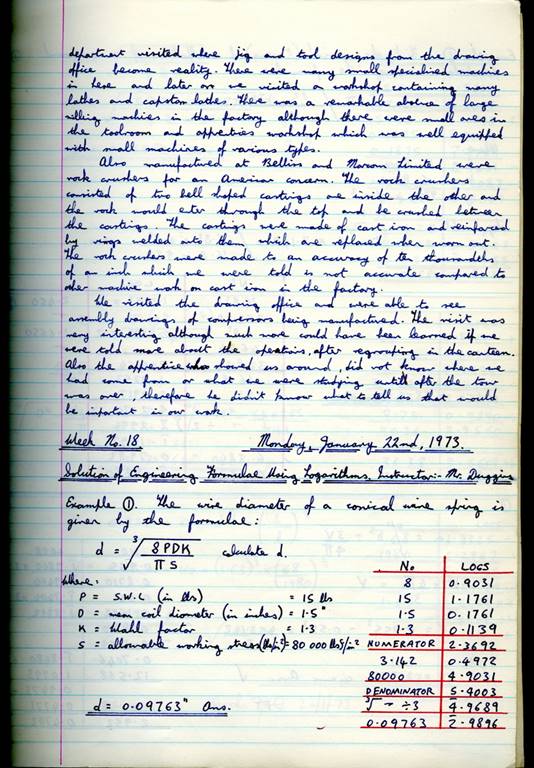 department visited where jig and tool designs from the drawing
office become reality. There were many small specialised machines
in here and later on we visited a workshop containing many
lathes and capstan lathes. There was a remarkable absence of large
milling machines in the factory although there were small ones in
the toolroom and apprentices workshop which was well equipped
with small machines of various types.
Also manufactured at Belliss and Morcom Limited were
rock crushers for an American concern. The rock crushers
consisted of two bell shaped castings one inside the other and
the rock would enter through the top and be crushed between
the castings. The castings were made of cast iron and reinforced
by rings welded onto them which are replaced when worn out.
The rock crushers were made to an accuracy of ten thousandths
of an inch which we were told is not accurate compared to
other machine work on cast iron in the factory.
We visited the drawing office and were able to see
assembly drawings of compressors being manufactured. The visit was
very interesting although much more could have been learned if we
were told more about the operations, after regrouping in the canteen.
Also the apprentice who showed us around, did not know where we
had come from or what we were studying until after the tour
was over, therefore he didn't know what to tell us that would
be important in our work.
Week No. 18. Monday, January 22nd, 1973.
Solution of Engineering Formulae Using Logarithms. Instructor:- Mr. Duggins
Example ①. The wire diameter of a conical wire spring is
given by the formulae:
d = ∛(8PDK / πS) calculate d.
where:
P = S.W.L (in lbs) = 15 lbs
D = mean coil diameter (in inches) = 1.5"
K = Wahl factor = 1.3
S = allowable working stress (lbs/in²) = 80 000 lbs/in²
d = 0.09763" Ans.
No LOGS
8 0.9031
15 1.1761
1.5 0.1761
1.3 0.1139
NUMERATOR 2.3692
3.142 0.4972
80000 4.9031
DENOMINATOR 5.4003
∛ = ÷3 4̄.9689
0.09763 2̄.9896